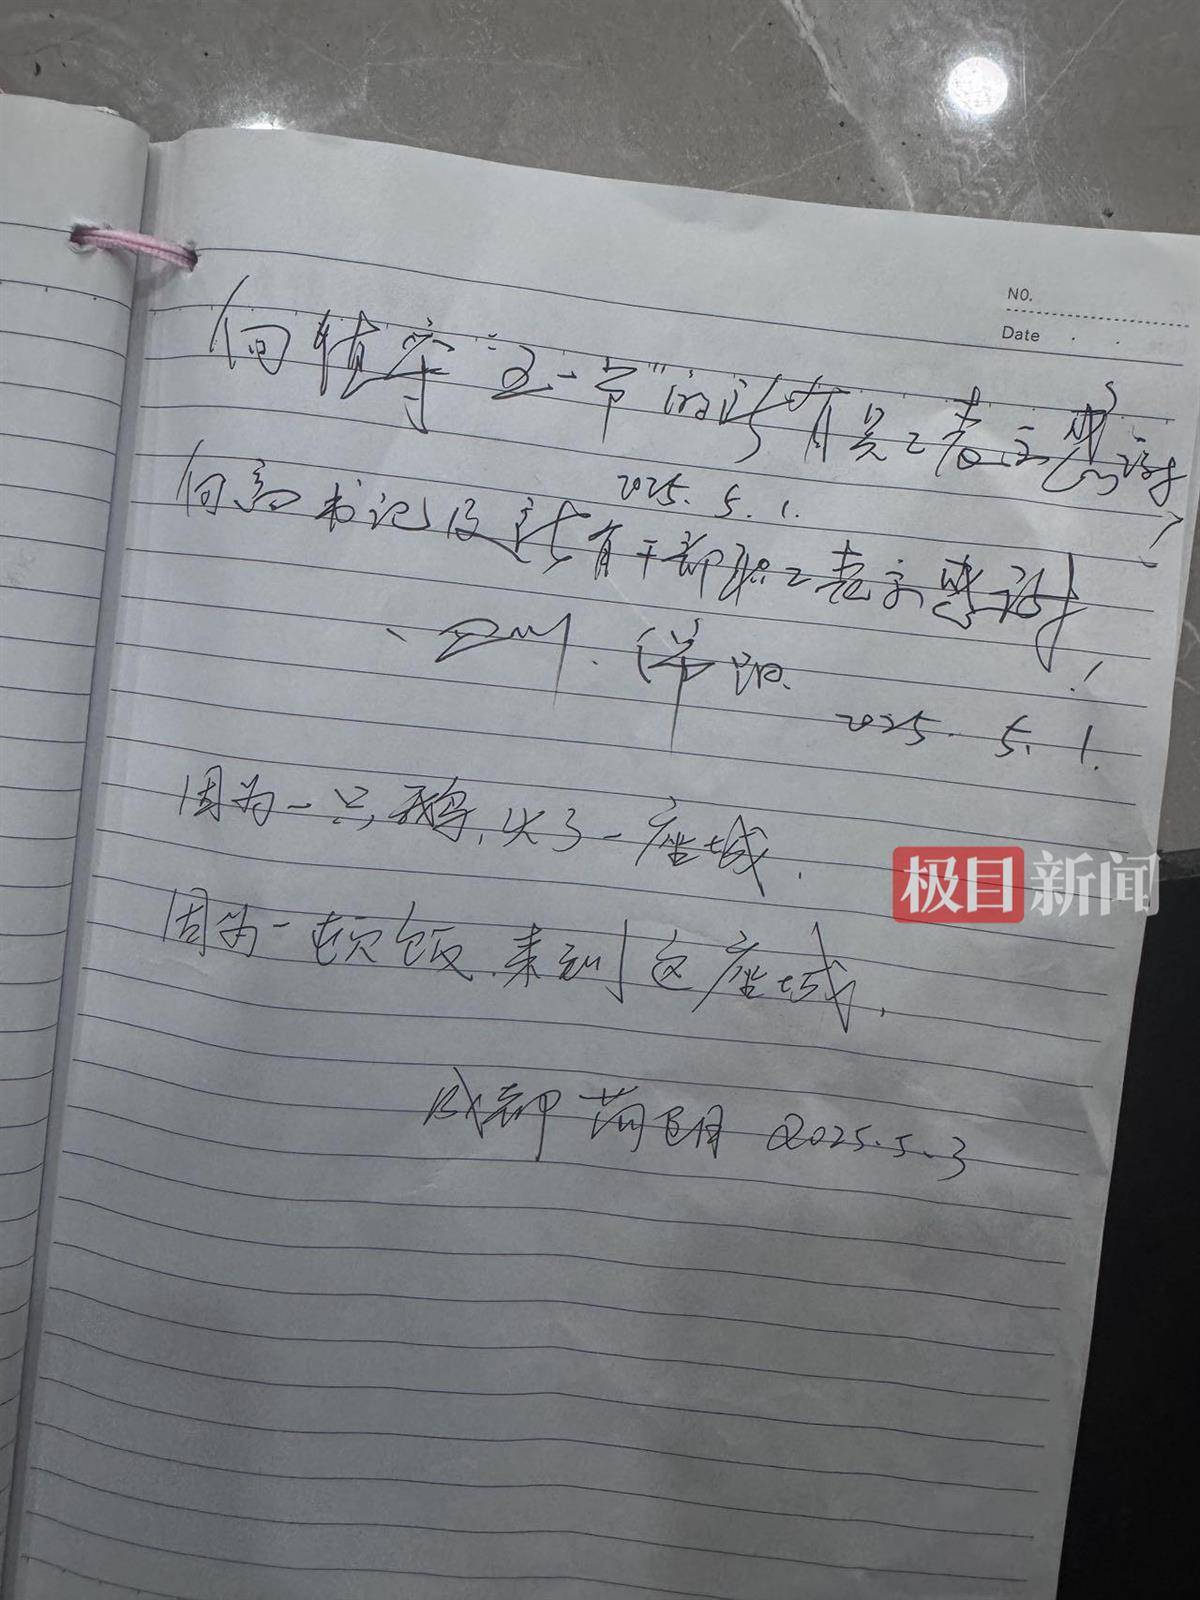 NO.
Date
向植守"五一节"的所有员工表示感谢
2025.5.1.
向高书记及所有干部职工表示感谢!
四川.德阳.
2025.5.1.
因为一只鹅,火了一座城.
极目新闻
因为一顿饭,来到这座城.
成都 2025.5.3